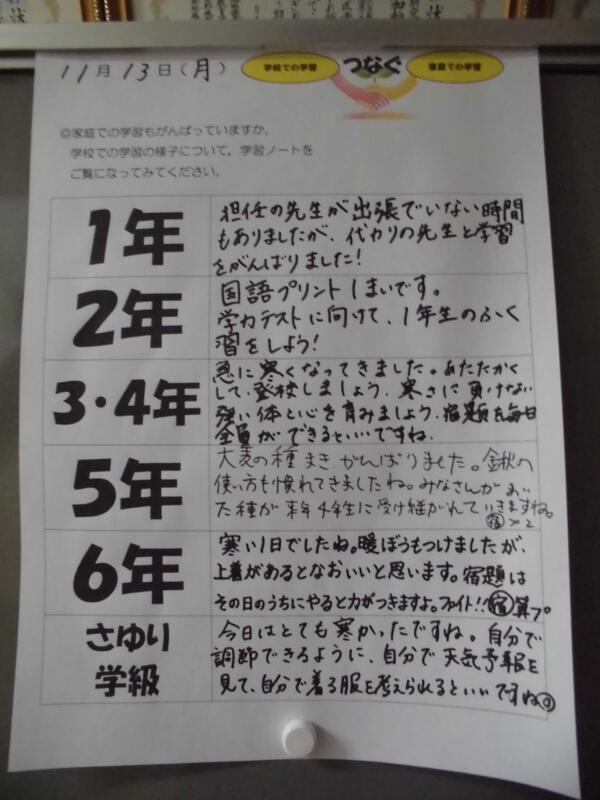 11月13日(月)
学校での学習
つなぐ
家庭での学習
◎家庭での学習もがんばっていますか。
学校での学習の様子について、学習ノートを
ご覧になってみてください。
1年
担任の先生が出張でいない時間
もありましたが、代わりの先生と学習
をがんばりました!
2年
国語プリント1まいです。
学力テストに向けて、1年生のふく
習をしよう!
3・4年
急に寒くなってきました。あたたかく
して、登校しましょう。寒さに負けない
強い体と心を育みましょう。宿題を毎日
全員ができるといいですね。
5年
大麦の種まき、がんばりました。金秋の
使い方も慣れてきましたね。みなさんがまい
た種が来年4年生に受け継がれていきますね。
宿×2
6年
寒い1日でしたね。暖ぼうもつけましたが、
上着があるとなおいいと思います。宿題は
その日のうちにやると力がつきますよ。ファイト!!宿算プ
さゆり
学級
今日はとても寒かったですね。自分で
調節できるように、自分で天気予報を
見て、自分で着る服を考えられるといいですね